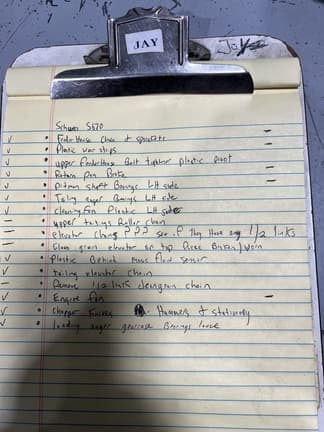 JAY
Jay
S670
✓ • FeederHouse Chain & sprockets –
✓ • Plastic wear strips –
✓ • upper FeederHouse Belt tightner plastic pivot
✓ • Return Pan Broke –
✓ • Pitman shaft Bearings LH side
✓ • Tailing auger Bearings LH side
✓ • Cleaning Fan Plastic LH side
✓ • upper tailings Roller chain
– • elevator chang ??? see if They Have any 1/2 links
– • Clean grain elevator on top Piece Broken/worn
✓ • Plastic Behind mass flow sensor
✓ • tailing elevator chain
– • Remove links cleangrain chain
✓ • Engine fan –
✓ • Chopper Knives Hammers & stationary
✓ • loading auger gearcase Bearings loose